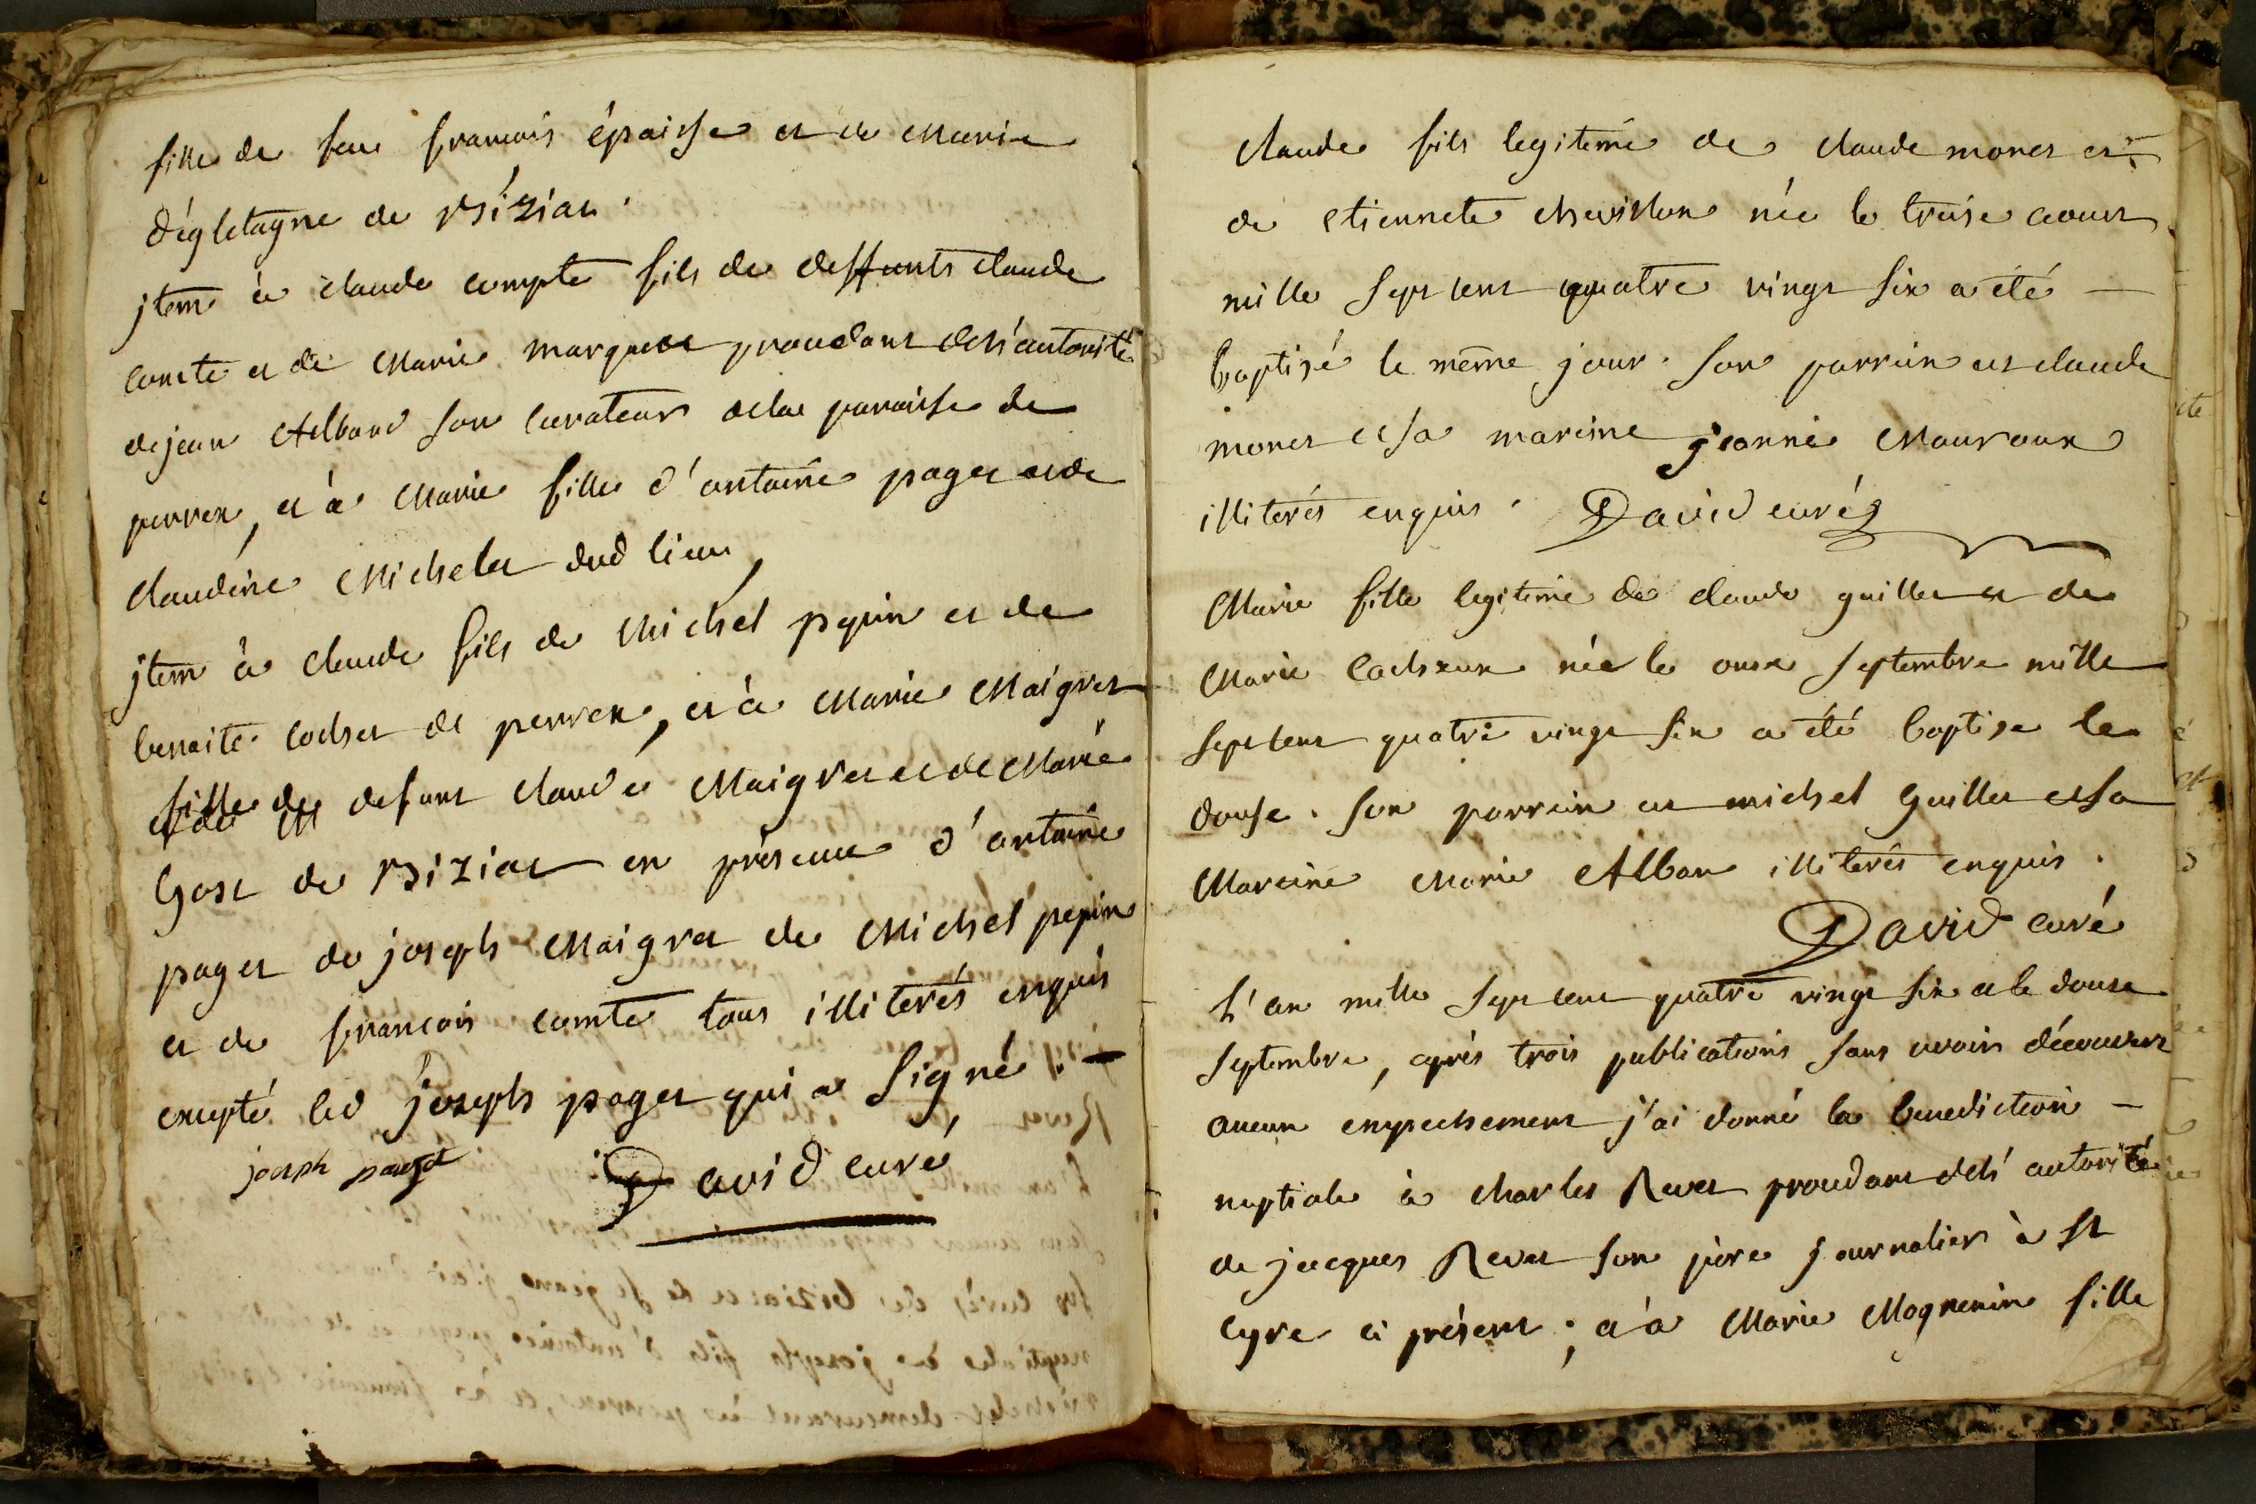 fille de feu francois épaisse et de Marie
dégletagne de Biziat.
jtem à claude compte fils de deffunts claude
comte et de Marie marguet proudant de l'autorité
de jean Alband son curateur de la paroisse de
perrex, et à Marie fille d'antoine paget et de
claudine Michelet dud lieu,
jtem à claude fils de Michel pepin et de
benoite cochet de perrex, et à Marie Maigret
fille de defunt claude Maigret et de Marie
Gost de Biziat en présence d'antoine
paget de joseph Maigret de Michel pepin
et de francois comte tous illiterés enquis
excepté led joseph paget qui a signé. -
joseph paget
David curé
claude fils legitime de claude monet et
de etiennete chevillon née le treise aoust
mille sept cent quatre vingt six a été -
baptisé le même jour. son parrain est claude
monet et sa mareine jeanne Mauvoux
illiterés enquis. David curé
Marie fille legitime de claude guillet et de
Marie Cochoux née le onse septembre mille
sept cent quatre vingt six a été baptise le
douse. son parrein est michel Guillet et sa
Mareine Marie Alban illiterés enquis.
David curé
L'an mille sept cent quatre vingt six et le douse
septembre, après trois publications sans avoir découvert
aucun empechement j'ai donné la benediction -
nuptiale à charles Revet proudant de l'autorité
de jacques Revet son père journalier à St
Cyre ci présent; et à Marie Magnenin fille